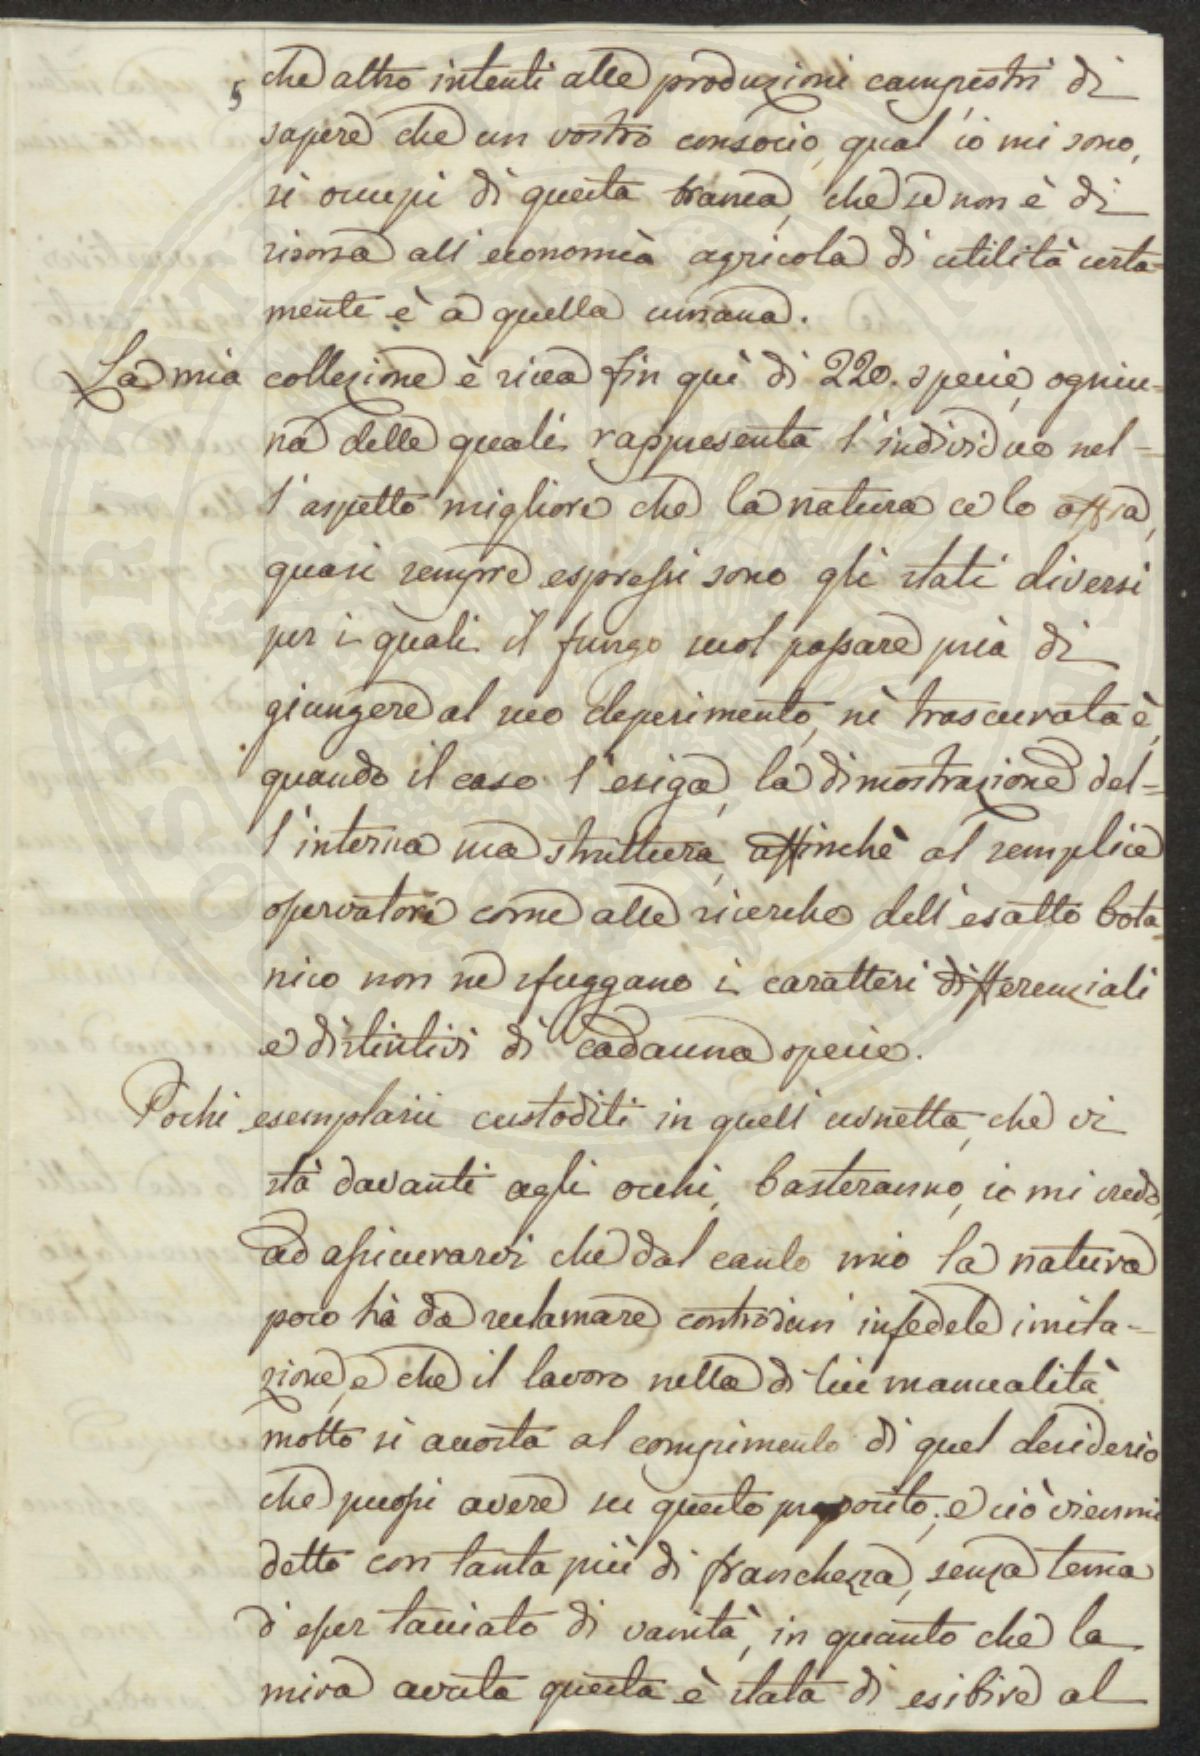 5
che altro intenti alle produzioni campestri di
sapere che un vostro consocio, qual'io mi sono,
si occupi di questa branca, che se non è di
risorsa all'economia agricola di utilità certa=
mente è a quella umana.
La mia collezione è ricca fin quì di 220. specie, ogniu=
na delle quali rappresenta l'individuo nel=
l'aspetto migliore che la natura ce lo offra,
quasi sempre espressi sono gli stati diversi
per i quali il fungo suol passare pria di
giungere al suo deperimento, nè trascurata è,
quando il caso l'esiga, la dimostrazione del=
l'interna sua struttura, affinchè al semplice
osservatore come alle ricerche dell'esatto bota=
nico non ne sfuggano i caratteri differenziali
e distintivi di cadauna specie.
Pochi esemplarii custoditi in quell'urnetta, che vi
stà davanti agli occhi, basteranno, io mi credo,
ad assicurarvi che dal canto mio la natura
poco hà da reclamare contro d'un infedele imita=
zione, e che il lavoro nella di lui manualità
molto si accosta al compimento di quel desiderio
che puossi avere su questo proposito; e ciò viemmi
detto con tanta più di franchezza, senza tema
d'esser tacciato di vanità, in quanto che la
mira avuta questa è stata di esibire al